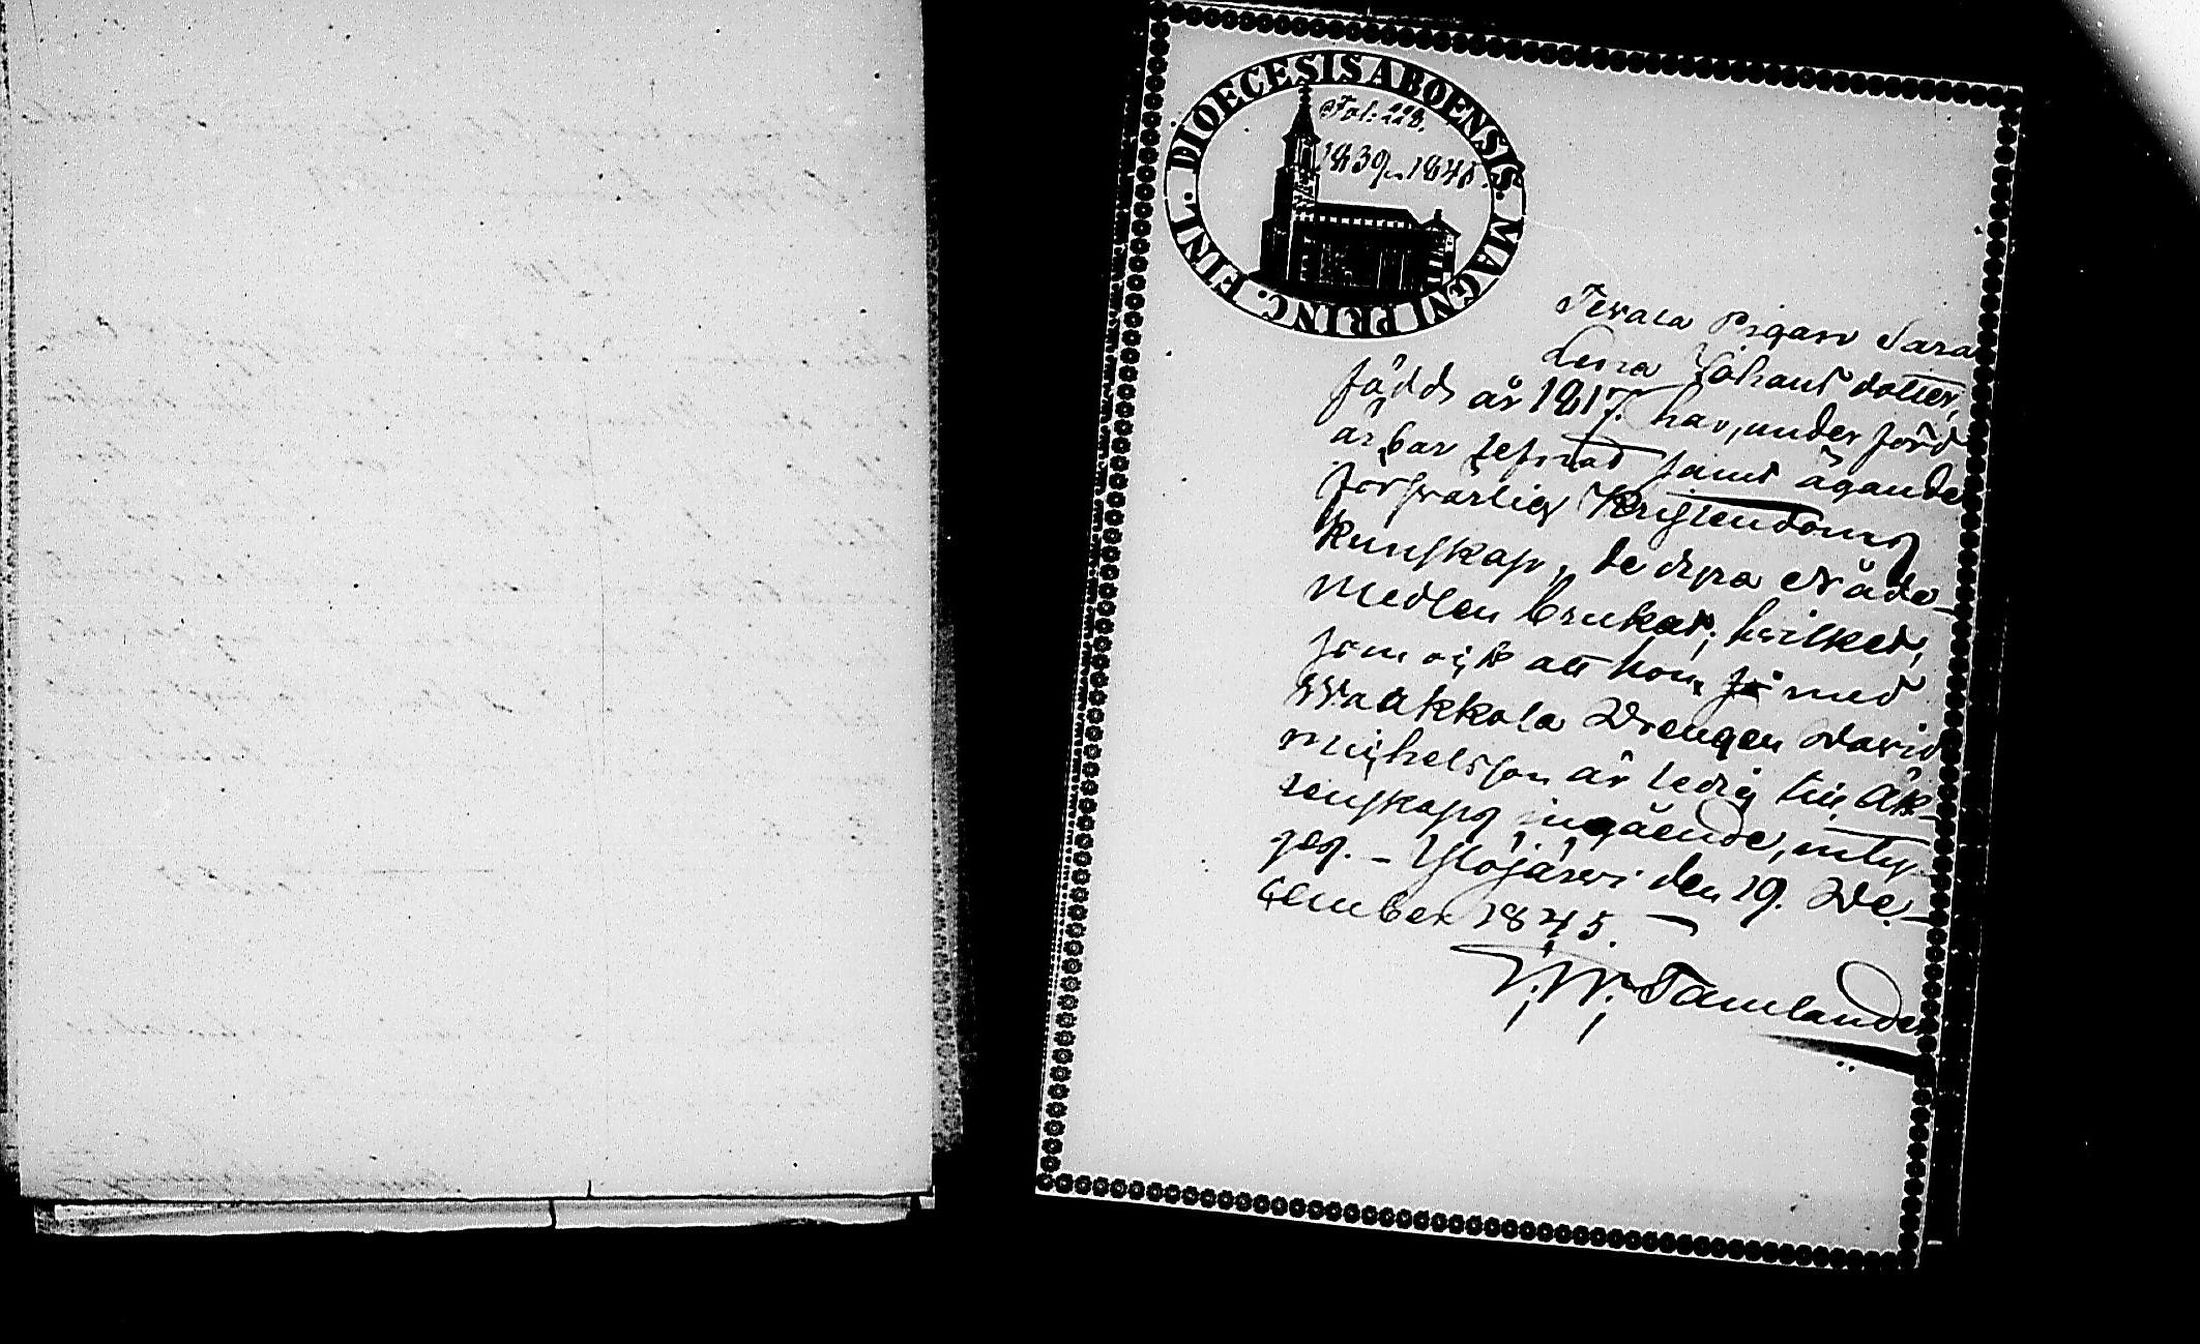 DIOECESIS ABOENSIS. MAGNI PRINC. FINL.
Fol: 228.
1839–1845.
Pigan Sara
Lena Johans dotter,
född år 1817. har, under förd
ärbar lefnad samt ägande
försvarlig Kristendoms
kunskap, de dyra Nåde-
medlen brukat; hvilket,
som ock att hon, med
Waakkola Drengen David
Michelsson är ledig till Äk-
tenskaps ingående, inty-
gas. – Ylöjärvi den 19. De-
cember 1845. –
Tamlander